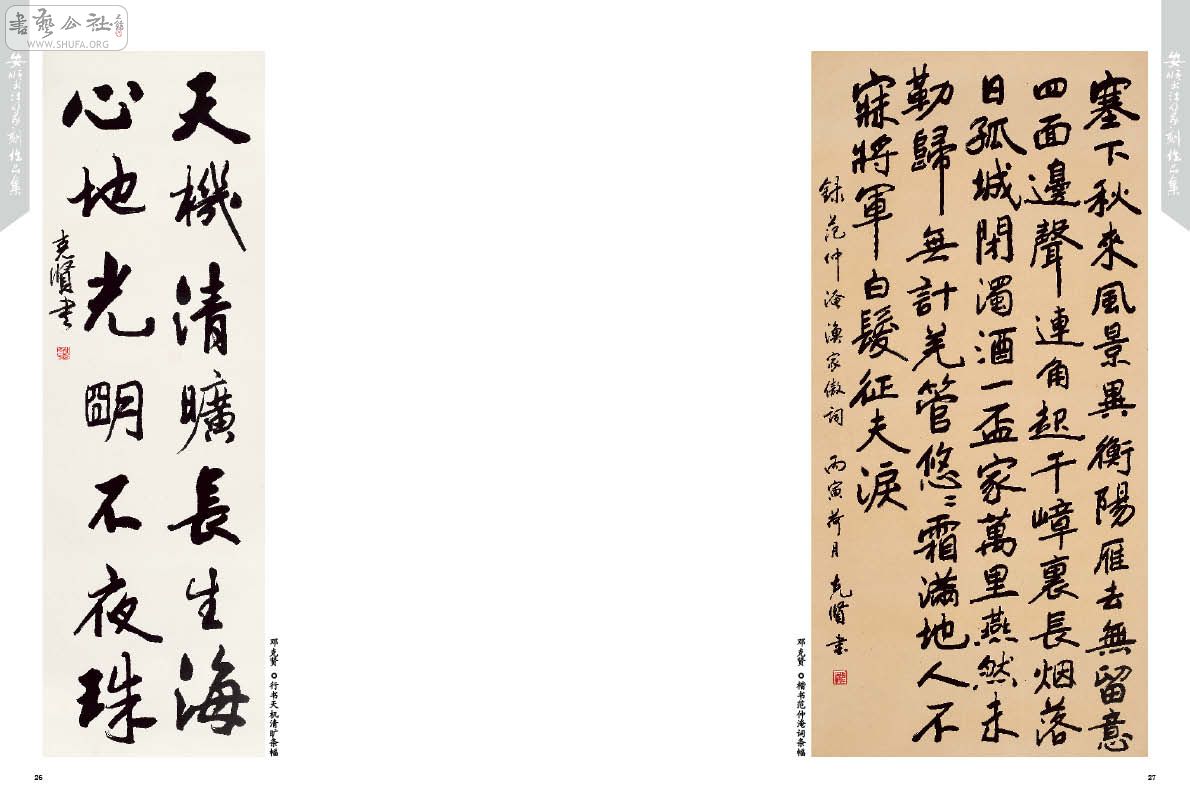 書藝公社
WWW.SHUFA.ORG
安順书法篆刻作品集
天機清曠長生海
心地光朙不夜珠
克賢书
邓克贤 行书天机清旷条幅
26
安順书法篆刻作品集
塞下秋來風景異衡陽雁去無留意
四面邊聲連角起千嶂裏長烟落
日孤城閉濁酒一盃家萬里燕然未
勒歸無計羌管悠〻霜滿地人不
寐將軍白髮征夫淚
録范仲淹漁家傲詞 丙寅荷月 克賢書
邓克贤 楷书范仲淹词条幅
27